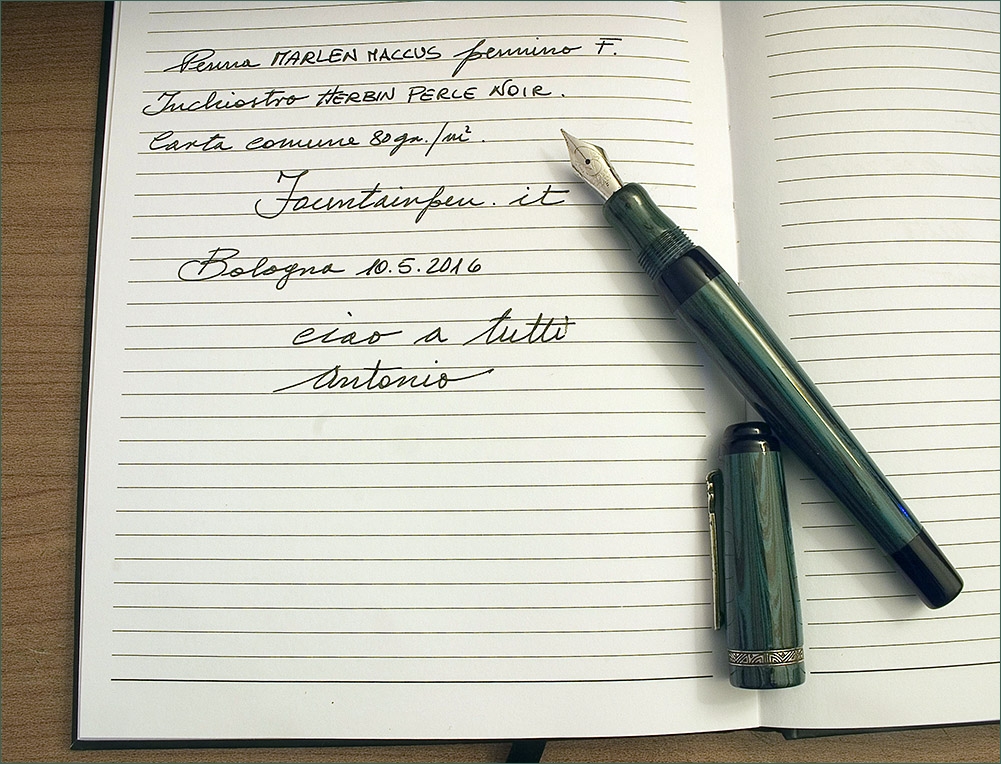 Penna MARLEN MACCUS pennino F.
Inchiostro HERBIN PERLE NOIR.
Carta comune 80gr./m².
Fountainpen.it
Bologna 10.5.2016
ciao a tutti
Antonio